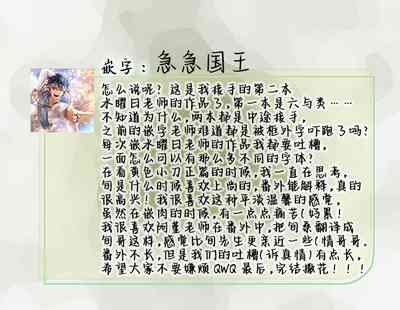 嵌字：急急国王
怎么说呢？这是我接手的第二本
水曜日老师的作品了，第一本是六与类……
不知道为什么，两本都是中途接手，
之前的嵌字老师难道都是被框外字吓跑了吗？
每次嵌水曜日老师的作品我都要吐槽，
一面怎么可以有那么多不同的字体？
在看黄色小刀正篇的时候，我一直在思考，
旬是什么时候喜欢上尚的，番外能解释，真的
很高兴！我很喜欢这种平淡温馨的感觉，
虽然在嵌肉的时候，有一点点痛苦（好累！
我很喜欢阿董老师在番外中，把旬桑翻译成
旬哥这样，感觉比旬先生更亲近一些（情哥哥。
番外不长，但是我们的吐槽（诉真情）有点长，
希望大家不要嫌烦QWQ 最后，完结撒花！！！